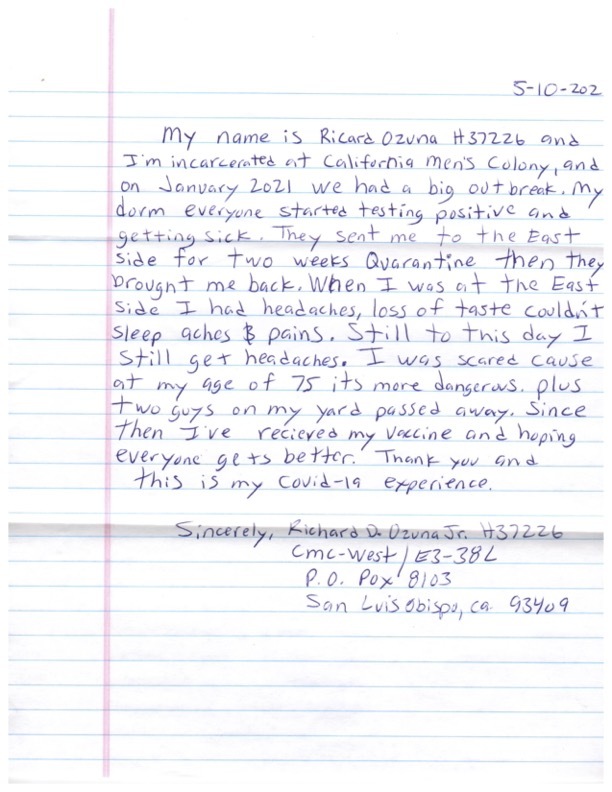 5-10-202
My name is Ricard Ozuna H37226 and
I'm incarcerated at California Men's Colony, and
on January 2021 we had a big outbreak. My
dorm everyone started testing positive and
getting sick. They sent me to the East
side for two weeks Quarantine then they
brought me back. When I was at the East
side I had headaches, loss of taste couldn't
sleep aches & pains. Still to this day I
still get headaches. I was scared cause
at my age of 75 its more dangerous. plus
two guys on my yard passed away. Since
then I've recieved my vaccine and hoping
everyone gets better. Thank you and
this is my Covid-19 experience.
Sincerely, Richard D. Ozuna Jr. H37226
CMC-West / E3-38L
P.O. Pox 8103
San Luis Obispo, ca. 93409